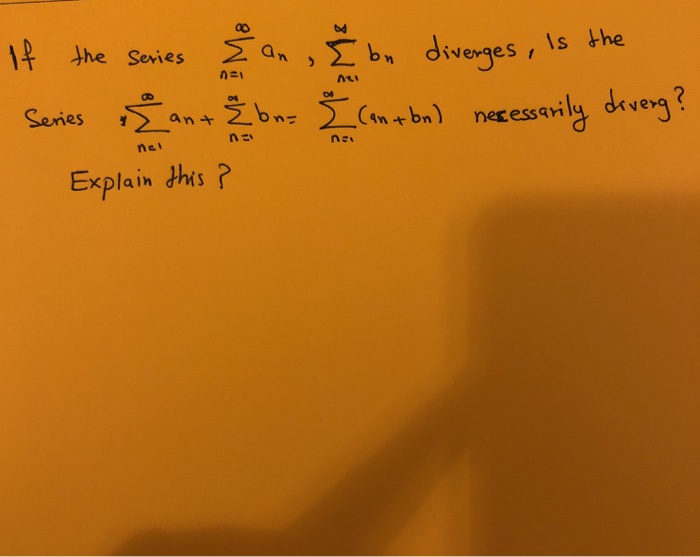 If the series ∞ Σ n=1 an , ∞ Σ n=1 bn diverges, Is the
Series ∞ Σ n=1 an + ∞ Σ n=1 bn = ∞ Σ n=1 (an + bn) necessarily diverg?
Explain this ?